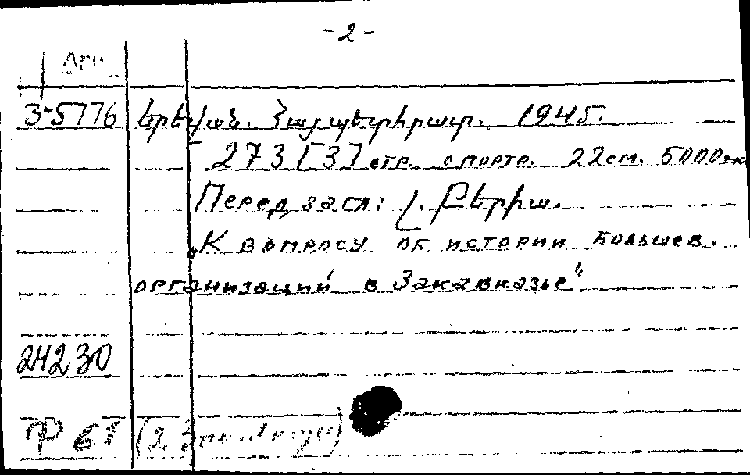 -2-
Арм.
3-5776 Երեվան. Հայպետհրատ. 1945.
273 [3] стр. с портр. 22 см. 5000 экз
Перед загл: Լ. Բերիա.
„К вопросу об истории большев.
организаций в Закавказье"
24230